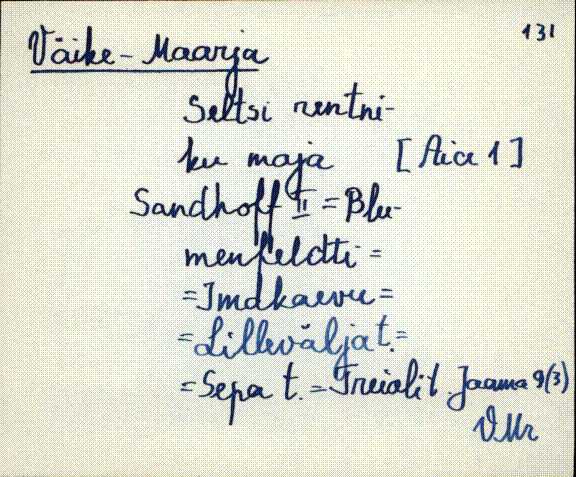 131
Väike-Maarja
Seltsi rentni-
ku maja [Aia 1]
Sandhoff II = Blu-
menfeldti =
= Imdkaevu =
= Lilleväljat. =
= Sepa t. = Treiali t. Jaama 9(3)
VMr